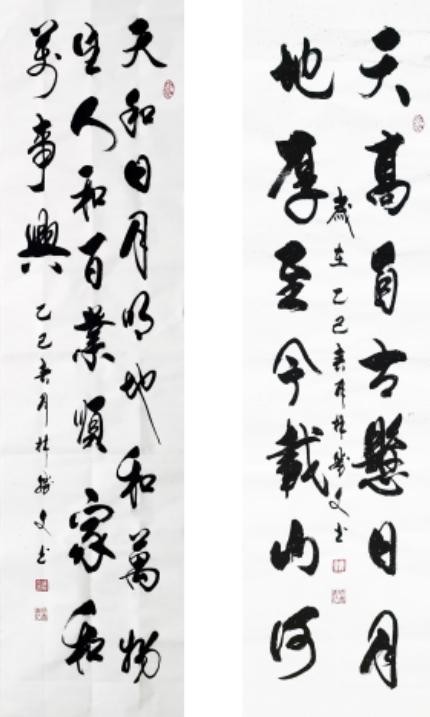 天高自古懸日月
地厚至今載山河
歲在乙巳春月林文书
天和日月明地和萬物
生人和百業順家和
萬事興
乙巳春月林文书